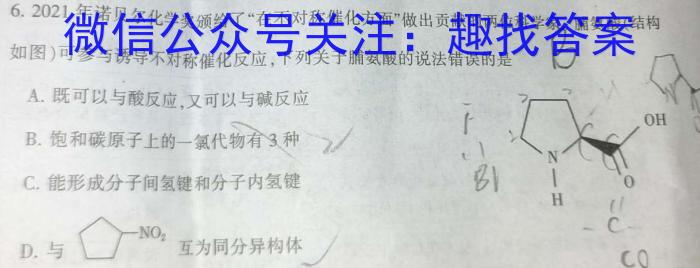 6. 2021年诺贝尔化学奖颁给了“在不对称催化方面”做出贡献的两位科学家,脯氨酸(结构
微信公众号关注：趣找答案
如图)可参与诱导不对称催化反应,下列关于脯氨酸的说法错误的是
A. 既可以与酸反应,又可以与碱反应
B. 饱和碳原子上的一氯代物有3种
C. 能形成分子间氢键和分子内氢键
D. 与
NO₂
互为同分异构体
OH
N
H
O
C
CO